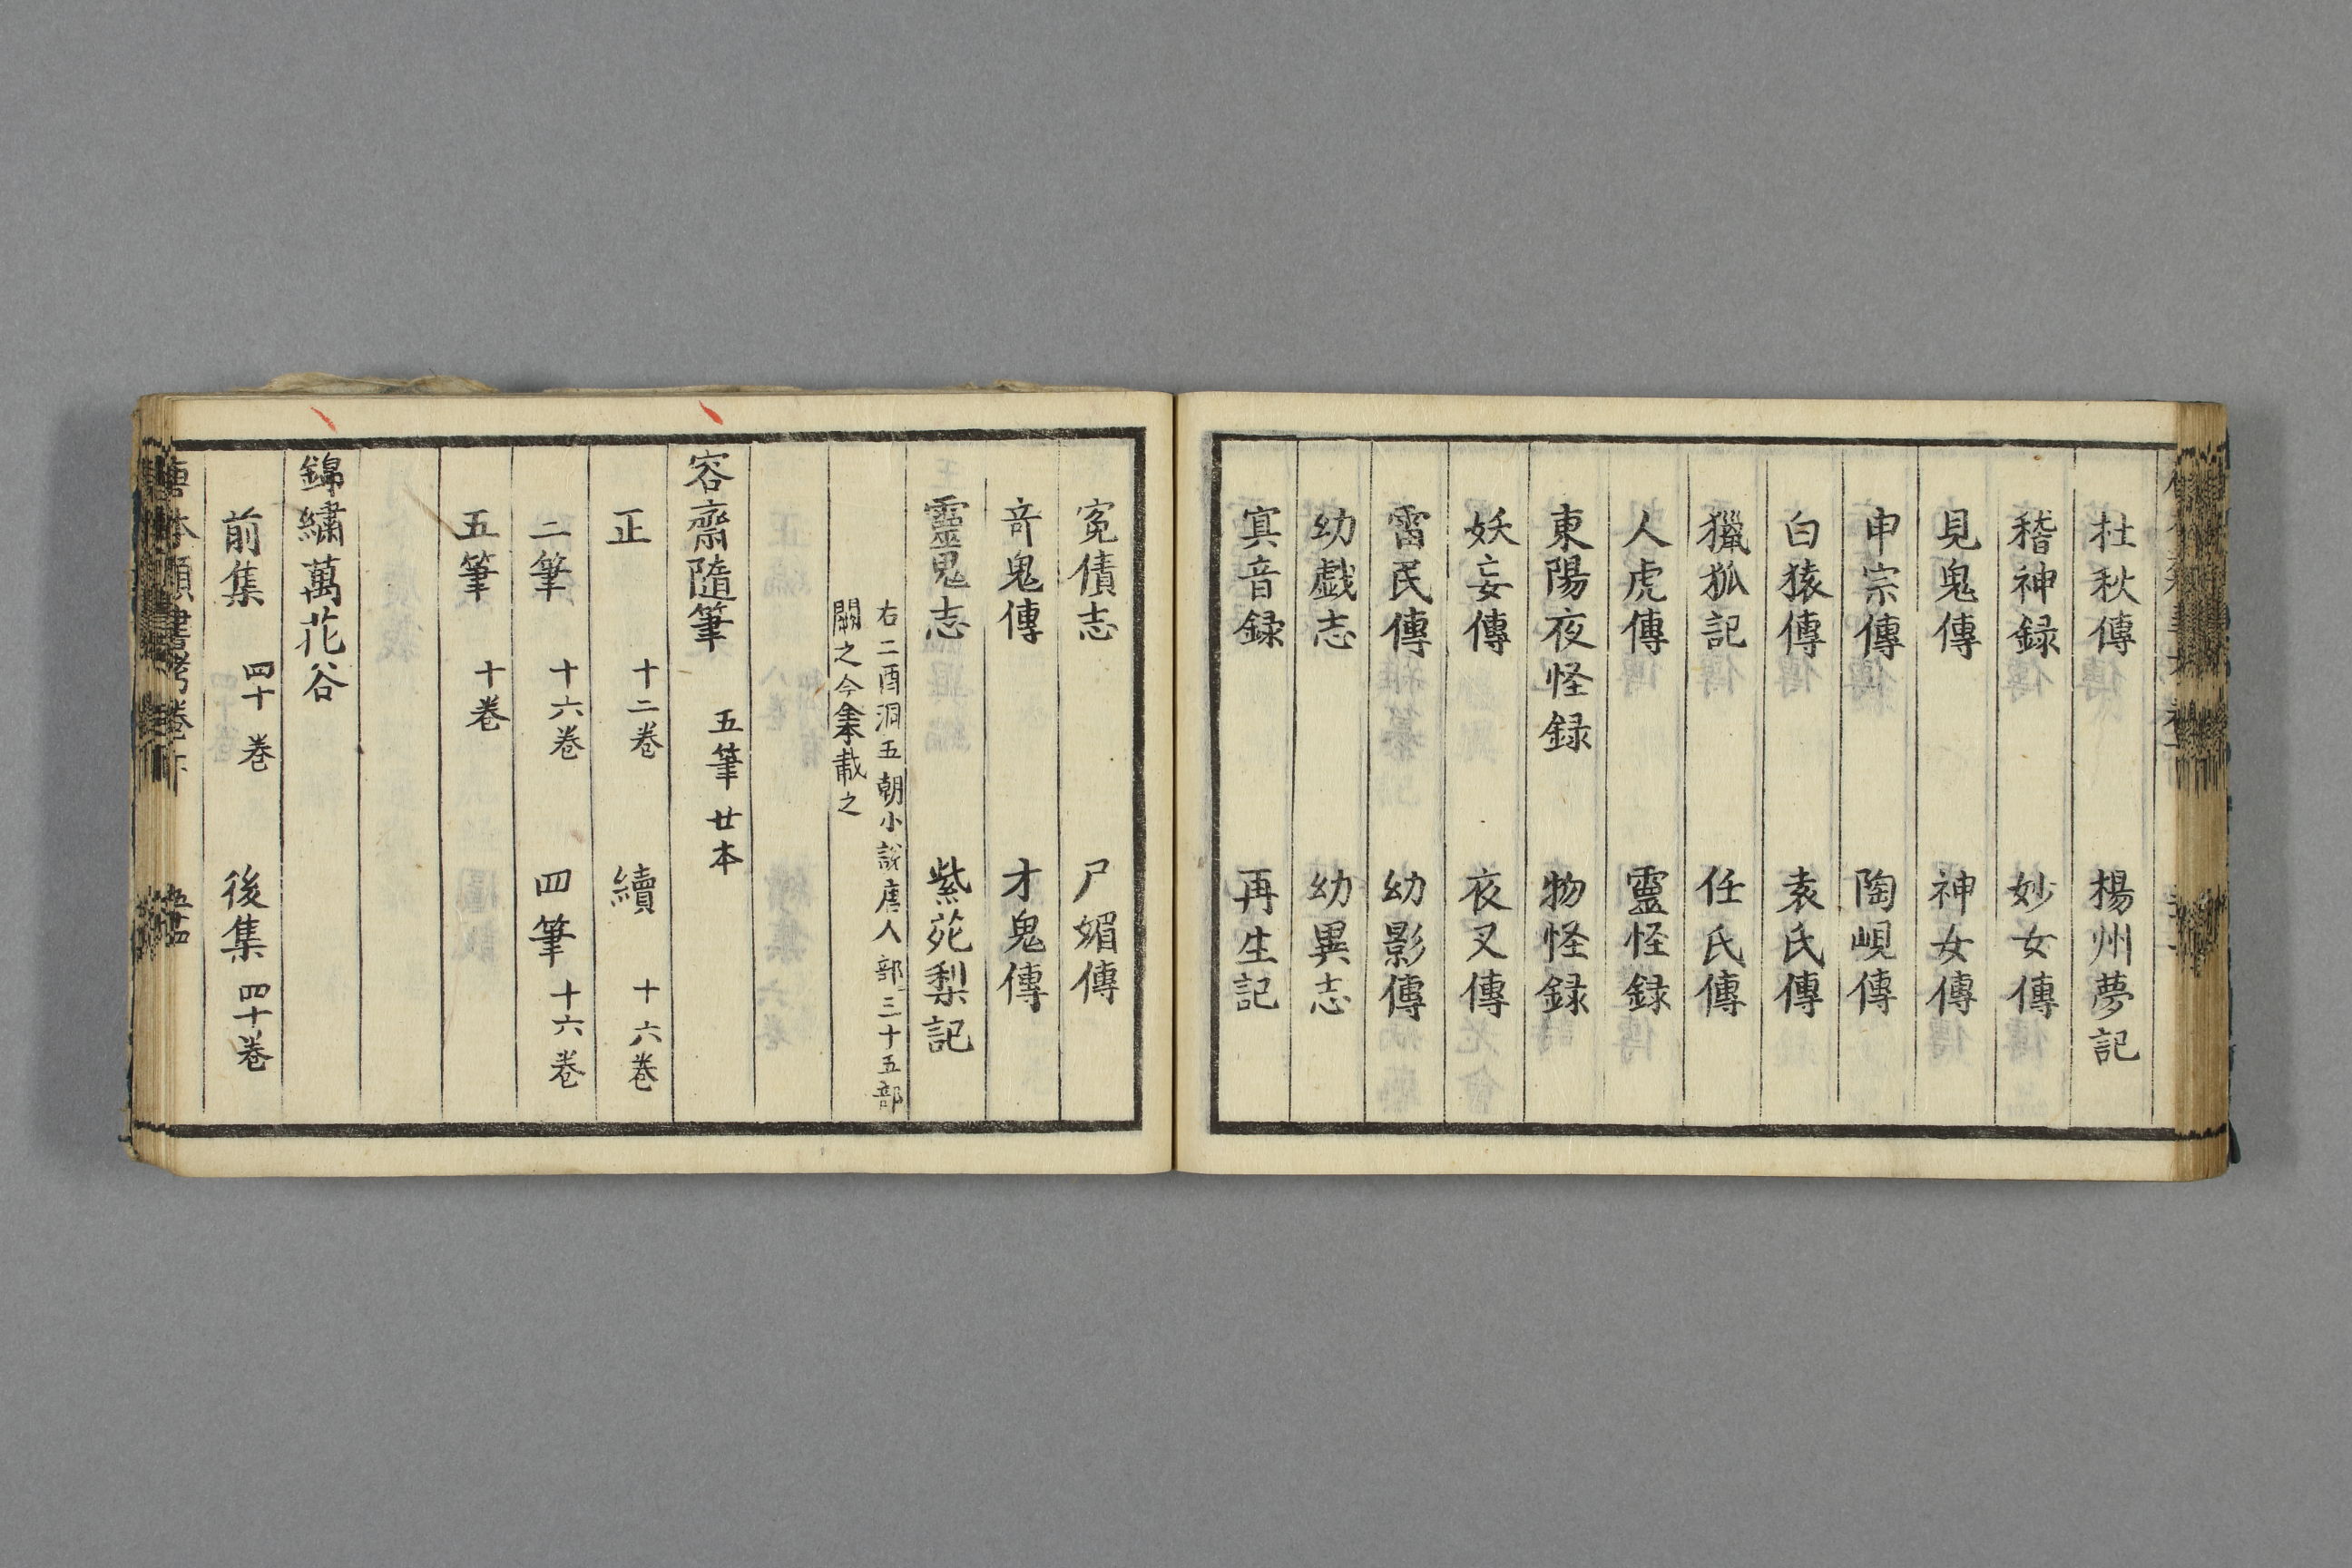 杜秋傳　楊州夢記
稽神録　妙女傳
見鬼傳　神女傳
申宗傳　陶峴傳
白猿傳　袁氏傳
獵狐記　任氏傳
人虎傳　靈怪録
東陽夜怪録　物怪録
妖妄傳　夜叉傳
雷民傳　幼影傳
幼戯志　幼異志
寘音録　再生記
寃債志　尸媚傳
竒鬼傳　才鬼傳
靈鬼志　紫苑梨記
右二酉洞五朝小說唐人部三十五部
闕之今載之
容齋隨筆　五筆　廿本
正　十二巻　續　十六巻
二筆　十六巻　四筆　十六巻
五筆　十巻
錦繡萬花谷
前集　四十巻　後集　四十巻
唐本類書考巻下